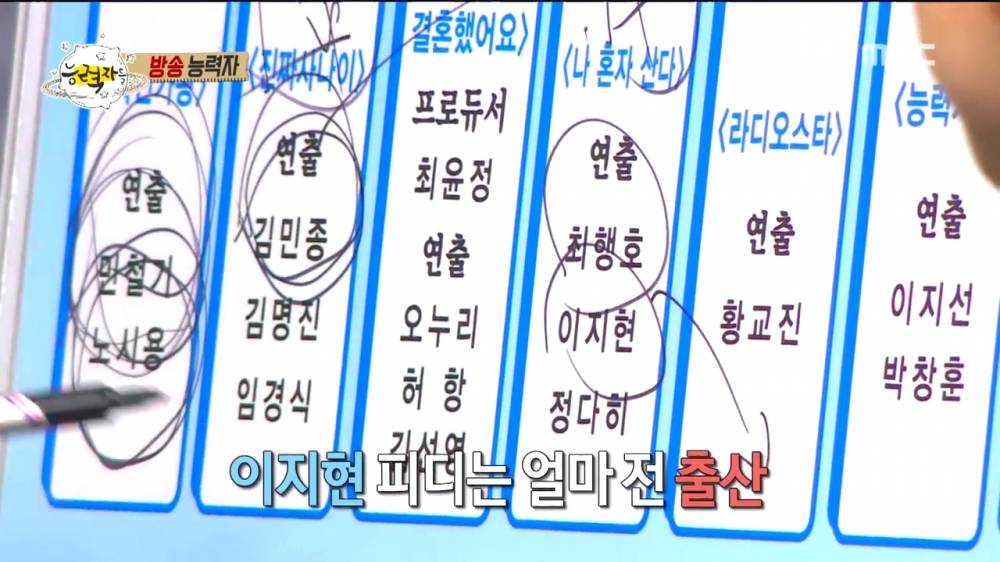 능력자들
방송 능력자
MBC
<진짜사나이>
연출
김민종
김명진
임경식
결혼했어요>
프로듀서
최윤정
연출
오누리
허 항
김선영
<나 혼자 산다>
연출
최행호
이지현
정다히
<라디오스타>
연출
황교진
<능력
연출
이지선
박창훈
연출
민철기
노시용
이지현 피디는 얼마 전 출산